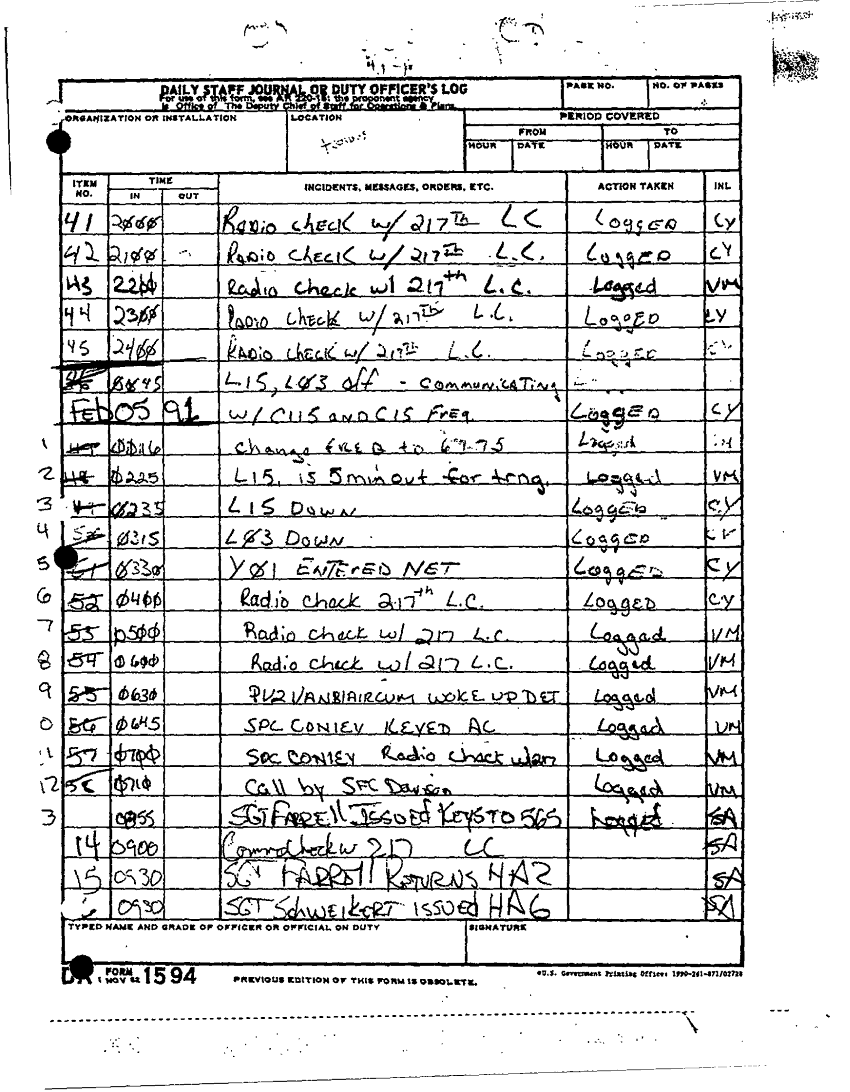 DAILY STAFF JOURNAL OR DUTY OFFICER'S LOG
For use of this form, see AR 220-15; the proponent agency
is Office of The Deputy Chief of Staff for Operations & Plans.
PAGE NO.
NO. OF PAGES
ORGANIZATION OR INSTALLATION
LOCATION
PERIOD COVERED
FROM
TO
HOUR DATE HOUR DATE
ITEM NO. TIME INCIDENTS, MESSAGES, ORDERS, ETC. ACTION TAKEN INL
IN OUT
41 2000 Radio check w/ 217th LC Logged CY
42 2100 Radio check w/ 217th L.C. Logged CY
43 2200 Radio check w/ 217th L.C. Logged VM
44 2300 Radio check w/ 217th L.C. Logged CY
45 2400 Radio check w/ 217th L.C. Logged CY
0045 L15, L03 off - communicating
FEB 05 91 w/ C115 and C15 Freq. Logged CY
1 change freq to Logged
2 48 0225 L15, is 5 min out for trng. Logged VM
3 0235 L15 Down Logged CY
4 0315 L03 Down Logged
5 51 0330 Y01 ENTERED NET Logged CY
6 52 0400 Radio check 217th L.C. Logged CY
7 53 0500 Radio check w/ 217 L.C. Logged VM
8 54 0600 Radio check w/ 217 L.C. Logged VM
9 55 0630 PV2 VANBIAIRCUM WOKE UP DET Logged VM
0 56 0645 SPC CONLEY KEYED AC Logged VM
11 57 0700 SPC CONLEY Radio check w/ Logged VM
12 58 0710 Call by SFC Davison Logged VM
3 0855 SGT FARRELL ISSUED KEYS TO 565 Logged SA
14 0900 Commo check w 217 LC SA
15 0930 SGT FARRELL RETURNS HA2 SA
0930 SGT Schweikert ISSUED HA6 SA
TYPED NAME AND GRADE OF OFFICER OR OFFICIAL ON DUTY
SIGNATURE
DA FORM 1 NOV 62 1594
PREVIOUS EDITION OF THIS FORM IS OBSOLETE.
*U.S. Government Printing Office: 1990-261-871/02728